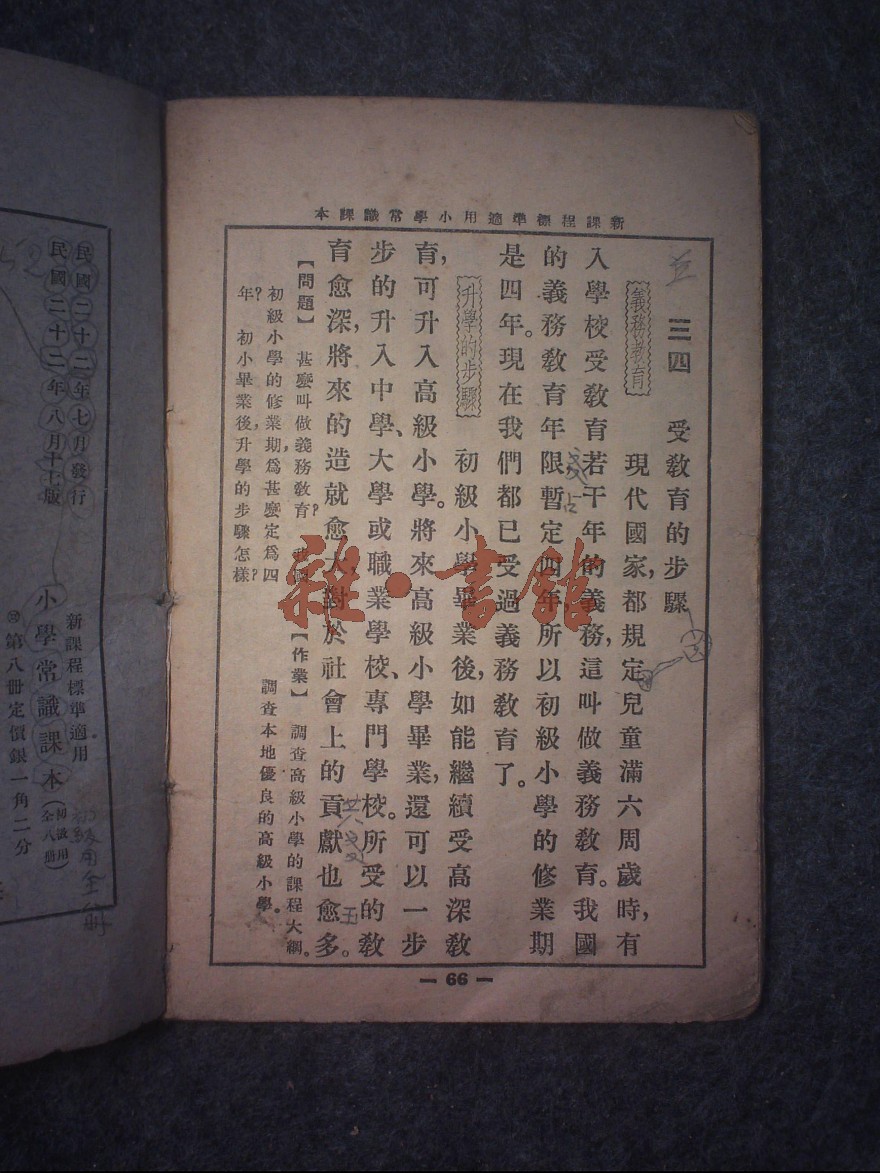 新課程標準適用小學常識課本
三四 受敎育的步驟
義務敎育 現代國家，都規定兒童滿六周歲時，有
入學校受敎育若干年的義務，這叫做義務敎育。我國
的義務敎育年限，暫定四年，所以初級小學的修業期
是四年。現在我們都已受過義務敎育了。
升學的步驟 初級小學畢業後，如能繼續受高深敎
育，可升入高級小學。將來高級小學畢業，還可以一步
步的升入中學、大學或職業學校、專門學校。所受的敎
育愈深，將來的造就愈大，對於社會上的貢獻也愈多。
【問題】 甚麼叫做義務敎育？我國
初級小學的修業期，爲甚麼定爲四
年？ 初小畢業後，升學的步驟怎樣？
【作業】 調查高級小學的課程大綱。
調查本地優良的高級小學。
— 66 —
雜·書館
民國二十二年七月發行
民國二十二年八月十二版
新課程標準適用
小學常識課本（初級用全八册）
第八冊定價銀一角二分
初級用全册